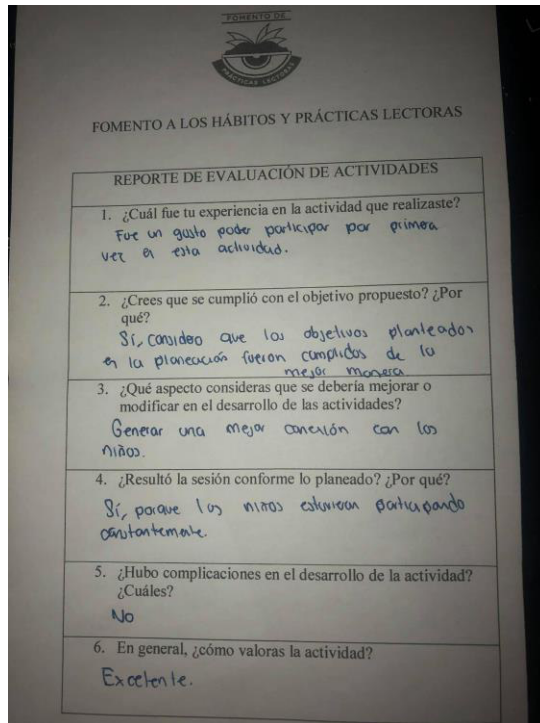 FOMENTO DE
PRÁCTICAS LECTORAS
FOMENTO A LOS HÁBITOS Y PRÁCTICAS LECTORAS
REPORTE DE EVALUACIÓN DE ACTIVIDADES
1. ¿Cuál fue tu experiencia en la actividad que realizaste?
Fue un gusto poder participar por primera
vez en esta actividad.
2. ¿Crees que se cumplió con el objetivo propuesto? ¿Por
qué?
Sí, considero que los objetivos planteados
en la planeación fueron cumplidos de la
mejor manera.
3. ¿Qué aspecto consideras que se debería mejorar o
modificar en el desarrollo de las actividades?
Generar una mejor conexión con los
niños.
4. ¿Resultó la sesión conforme lo planeado? ¿Por qué?
Sí, porque los niños estuvieron participando
constantemente.
5. ¿Hubo complicaciones en el desarrollo de la actividad?
¿Cuáles?
No
6. En general, ¿cómo valoras la actividad?
Excelente.